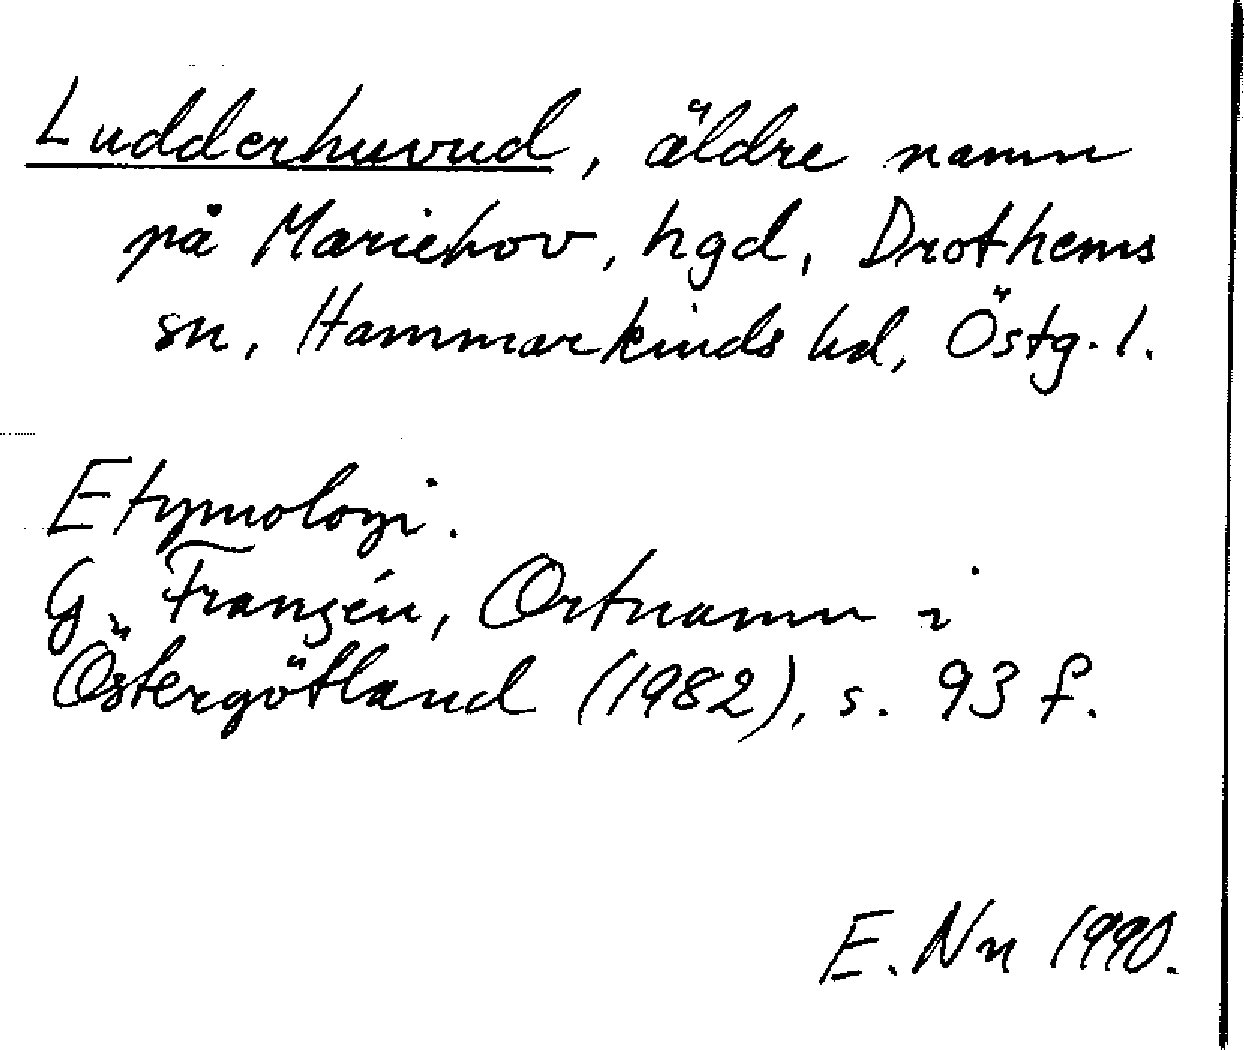 Ludderhuvud, äldre namn
på Mariehov, hgd, Drothems
sn, Hammarkinds hd, Östg. l.
Etymologi.
G. Franzén, Ortnamn i
Östergötland (1982), s. 93 f.
E. Nn 1990.